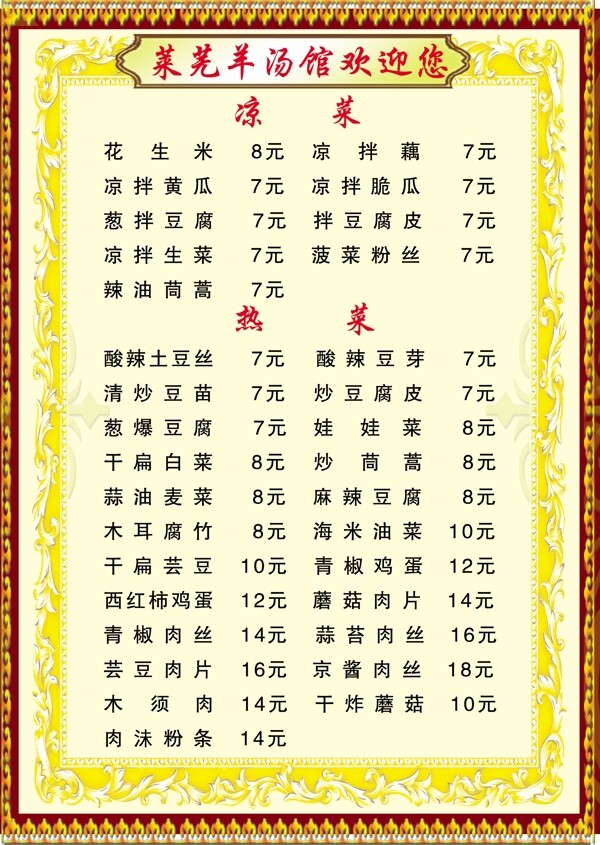 莱芜羊汤馆欢迎您
凉 菜
花生米 8元 凉拌藕 7元
凉拌黄瓜 7元 凉拌脆瓜 7元
葱拌豆腐 7元 拌豆腐皮 7元
凉拌生菜 7元 菠菜粉丝 7元
辣油茼蒿 7元
热 菜
酸辣土豆丝 7元 酸辣豆芽 7元
清炒豆苗 7元 炒豆腐皮 7元
葱爆豆腐 7元 娃娃菜 8元
干扁白菜 8元 炒茼蒿 8元
蒜油麦菜 8元 麻辣豆腐 8元
木耳腐竹 8元 海米油菜 10元
干扁芸豆 10元 青椒鸡蛋 12元
西红柿鸡蛋 12元 蘑菇肉片 14元
青椒肉丝 14元 蒜苔肉丝 16元
芸豆肉片 16元 京酱肉丝 18元
木须肉 14元 干炸蘑菇 10元
肉沫粉条 14元